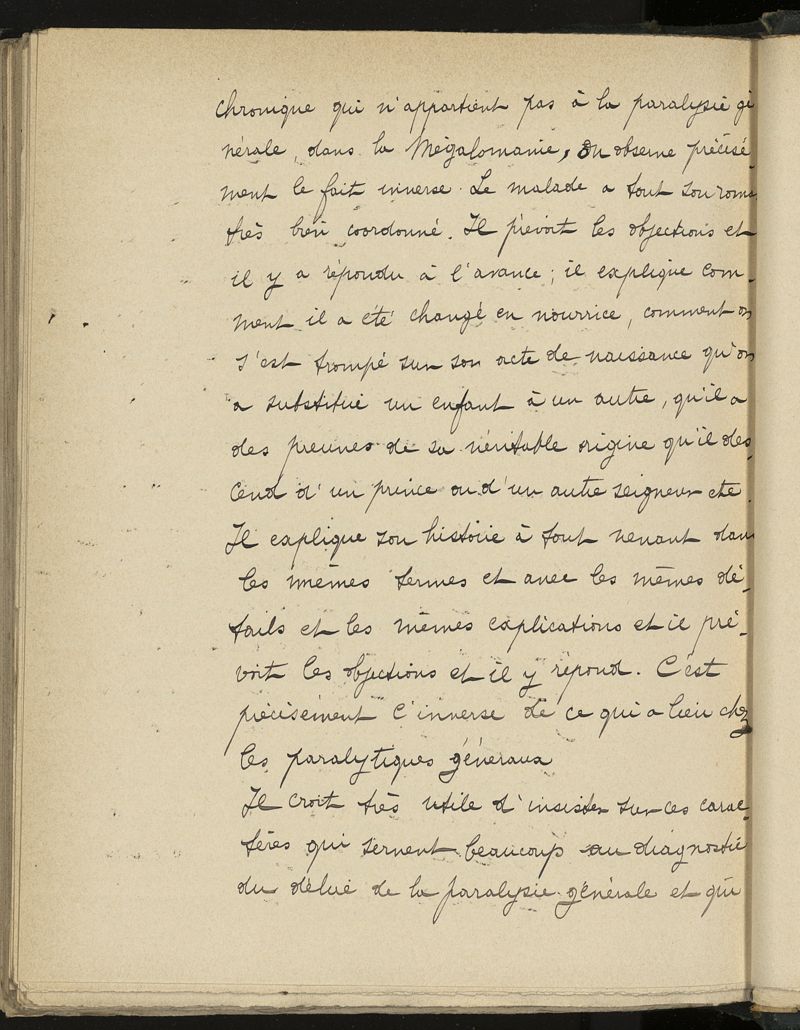 chronique qui n'appartient pas à la paralysie gé
nérale, dans la Mégalomanie, on observe précisé-
ment le fait inverse. Le malade a tout son roma
très bien coordonné. Il prévoit les objections et
il y a répondu à l'avance; il explique com-
ment il a été changé en nourrice, comment on
s'est trompé sur son acte de naissance qu'on
a substitué un enfant à un autre, qu'il a
des preuves de sa véritable origine qu'il des-
cend d'un prince ou d'un autre seigneur etc.
Il explique son histoire à tout venant dans
les mêmes termes et avec les mêmes dé-
tails et les mêmes explications et il pré-
voit les objections et il y répond. C'est
précisément l'inverse de ce qui a lieu chez
les paralytiques généraux
Il croit très utile d'insister sur ces carac-
tères qui servent beaucoup au diagnostic
du délire de la paralysie générale et qui